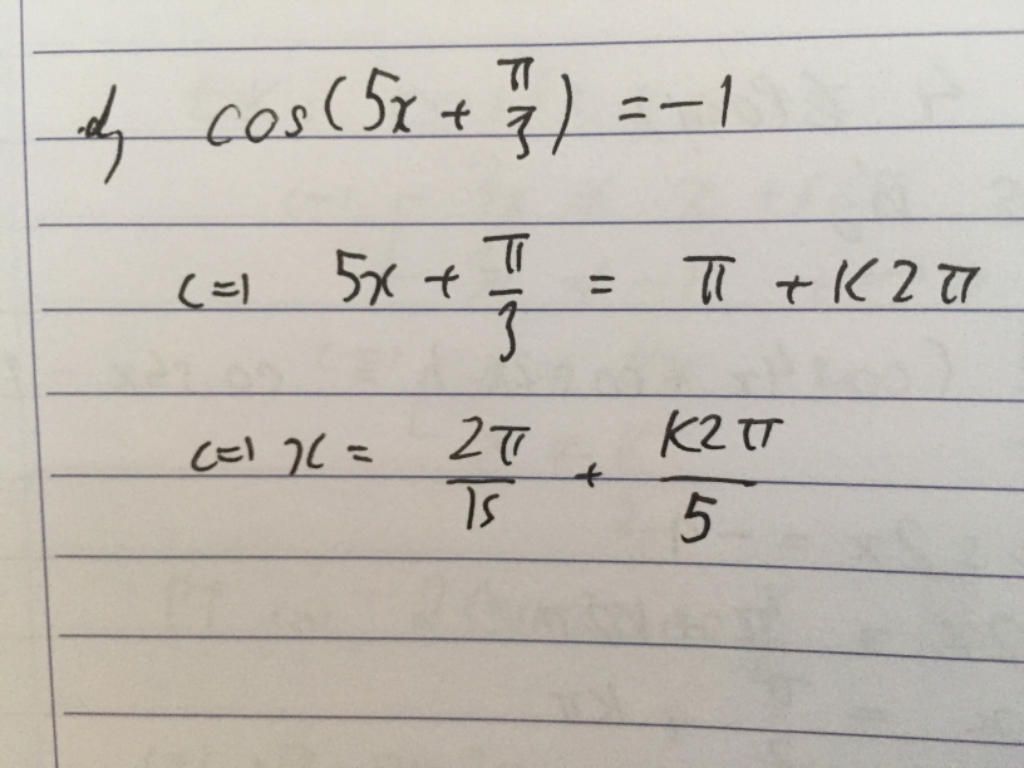 d) cos(5x + π/3) = -1
<=> 5x + π/3 = π + K2π
<=> x = 2π/15 + K2π/5